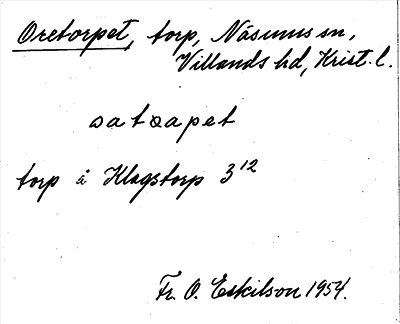 Oretorpet, torp, Näsums sn,
Villands hd, Krist. l.
torp å Klagstorp 3¹²
Fr. O. Eskilson 1954.